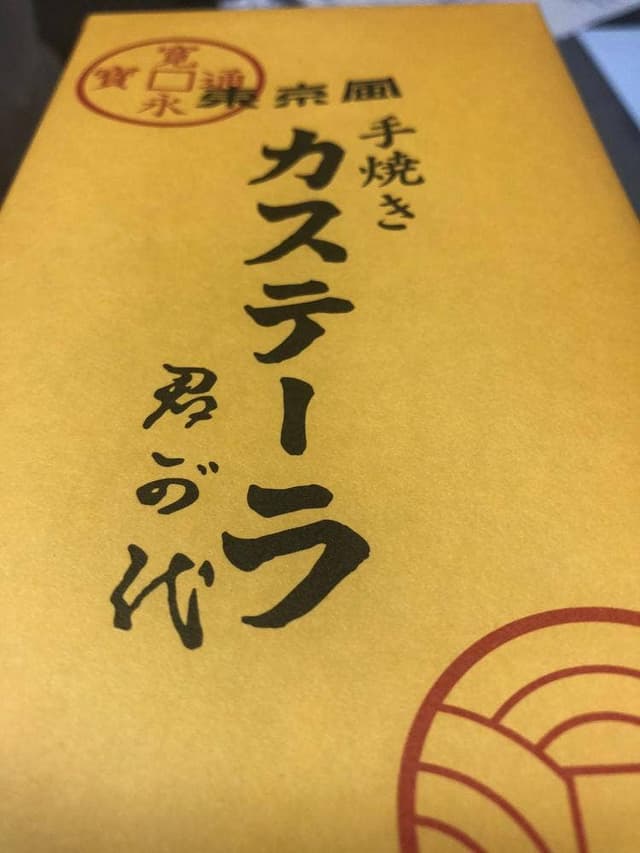 寛永通寶
東京凮
手焼き
カステーラ
君が代